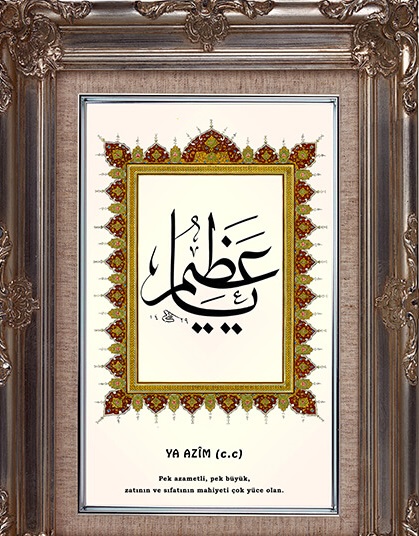 يا عظيم
١٤٢٩
YA AZÎM (c.c)
Pek azametli, pek büyük,
zatının ve sıfatının mahiyeti çok yüce olan.